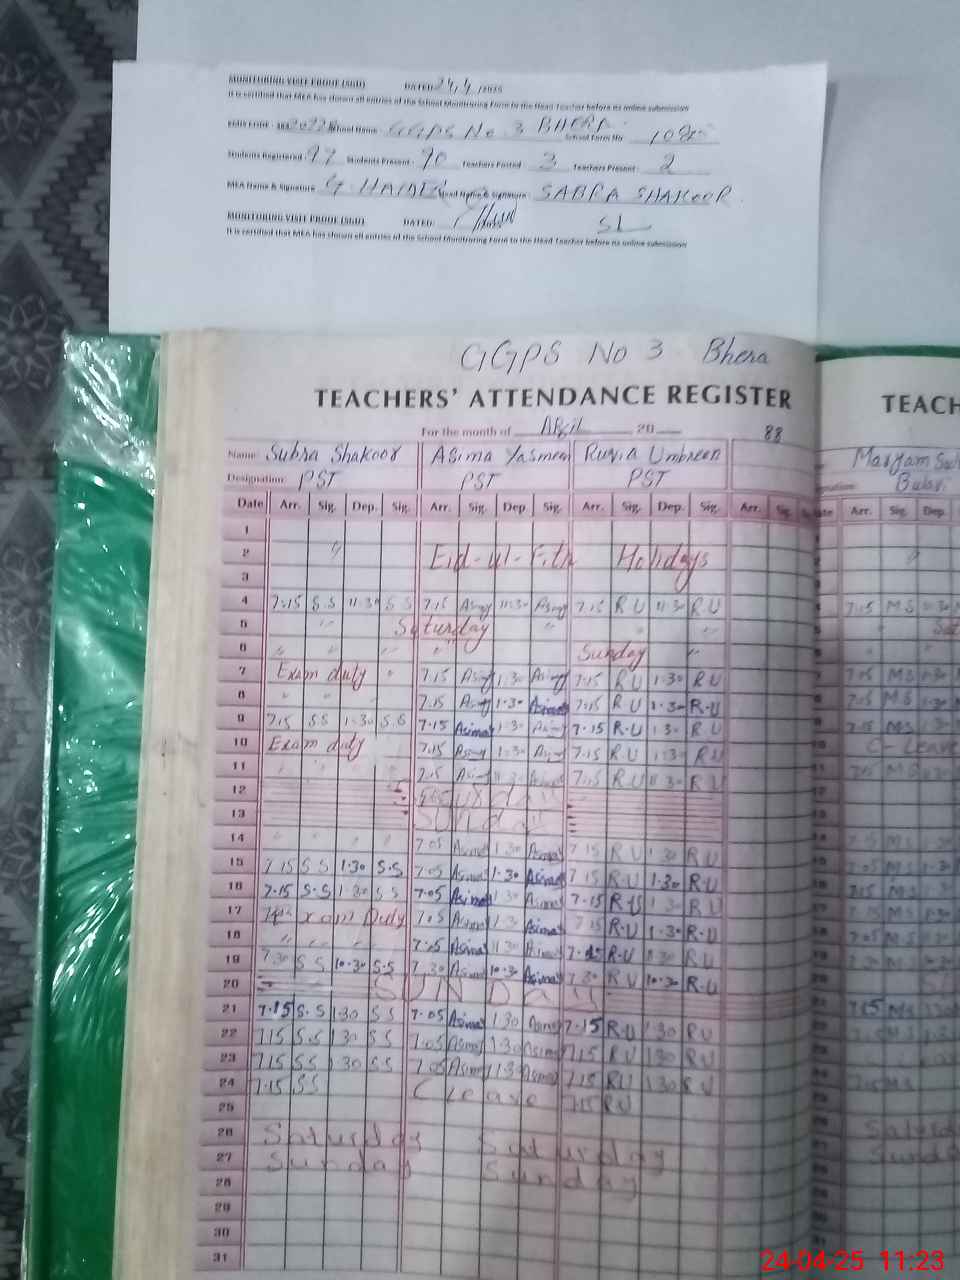 MONITORING VISIT PROOF (SGD) DATED 24, 4, /2025
It is certified that MEA has shown all entries of the School Monitoring Form to the Head Teacher before its online submission
School Name: GGPS No 3 BHERA School Form No
Students Registered: 97 Students Present: 90 Teachers Posted 3 Teachers Present: 2
MEA Name & Signature G. HAIDER Head Name & Signature: SABRA SHAKOOR
MONITORING VISIT PROOF (SGD) DATED:
It is certified that MEA has shown all entries of the School Monitoring Form to the Head Teacher before its online submission
GGPS No 3 Bhera
TEACHERS' ATTENDANCE REGISTER TEACH
For the month of April 20 88
Name: Subra Shakoor Asima Yasmeen Ruqia Umbreen Maryam
Designation: PST PST PST
Date Arr. Sig. Dep. Sig. Arr. Sig. Dep. Sig. Arr. Sig. Dep. Sig. Arr. Sig. Arr. Sig. Dep.
1
2 Eid-ul-Fitr Holidays
3
4 7.15 S.S 11.30 S S 7.15 Asima 11.30 Asima 7.15 R U 11.30 R.U 7.15 M S 11.30
5 Saturday
6 Sunday
7 Exam duty 7.15 Asima 1.30 Asima 7.15 R U 1.30 R U 7.15 M S 1.30
8 7.15 Asima 1.30 Asima 7.15 R.U 1.30 R.U 7.15 M S 1.30
9 7.15 SS 1.30 S.S 7.15 Asima 1.30 Asima 7.15 R.U 1.30 R.U 7.15 M.S 1.30
10 Exam duty 7.15 Asima 1.30 Asima 7.15 R.U 1.30 R U C-Leave
11 7.15 Asima 11.30 Asima 7.15 R U 11.30 R U 7.15 M.S
12 Saturday
13 Sunday
14 7.05 Asima 1.30 Asima 7.15 R U 1.30 R U
15 7.15 S S 1.30 S.S 7.05 Asima 1.30 Asima 7.15 R.U 1.30 R.U 7.05 M.S 1.30
16 7.15 S.S 1.30 S S 7.05 Asima 1.30 Asima 7.15 R.U 1.30 R U 7.15 M.S 1.30
17 Exam Duty 7.05 Asima 1.30 Asima 7.15 R.U 1.30 R.U
18 7.05 Asima 11.30 Asima R.U 11.30 R U 7.05 M.S
19 7.30 S S 10.30 S.S 7.30 Asima 10.30 Asima 7.30 R U 10.30 R.U
20 SUNDAY
21 7.15 S.S 1.30 S S 7.05 Asima 1.30 Asima 7.15 R.U 1.30 R U 7.15 M.S
22 7.15 S.S 1.30 S S 7.05 Asima 1.30 Asima 7.15 R.U 1.30 R U
23 7.15 S S 1.30 S S 7.05 Asima 1.30 Asima 7.15 R U 1.30 R U
24 7.15 SS C leave 7.15 R U
25
26 Saturday Saturday
27 Sunday Sunday
28
29
30
31
24-04-25 11:23